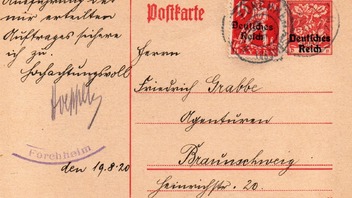 Ausführung des
mir erteilten
Auftrages sichere
ich zu.
Hochachtungsvoll
Forchheim
den 19.8.20
Postkarte
Deutsches
Reich
Deutsches
Reich
Herren
Friedrich Grabbe
Agenturen
Braunschweig
Heinrichstr. 20.